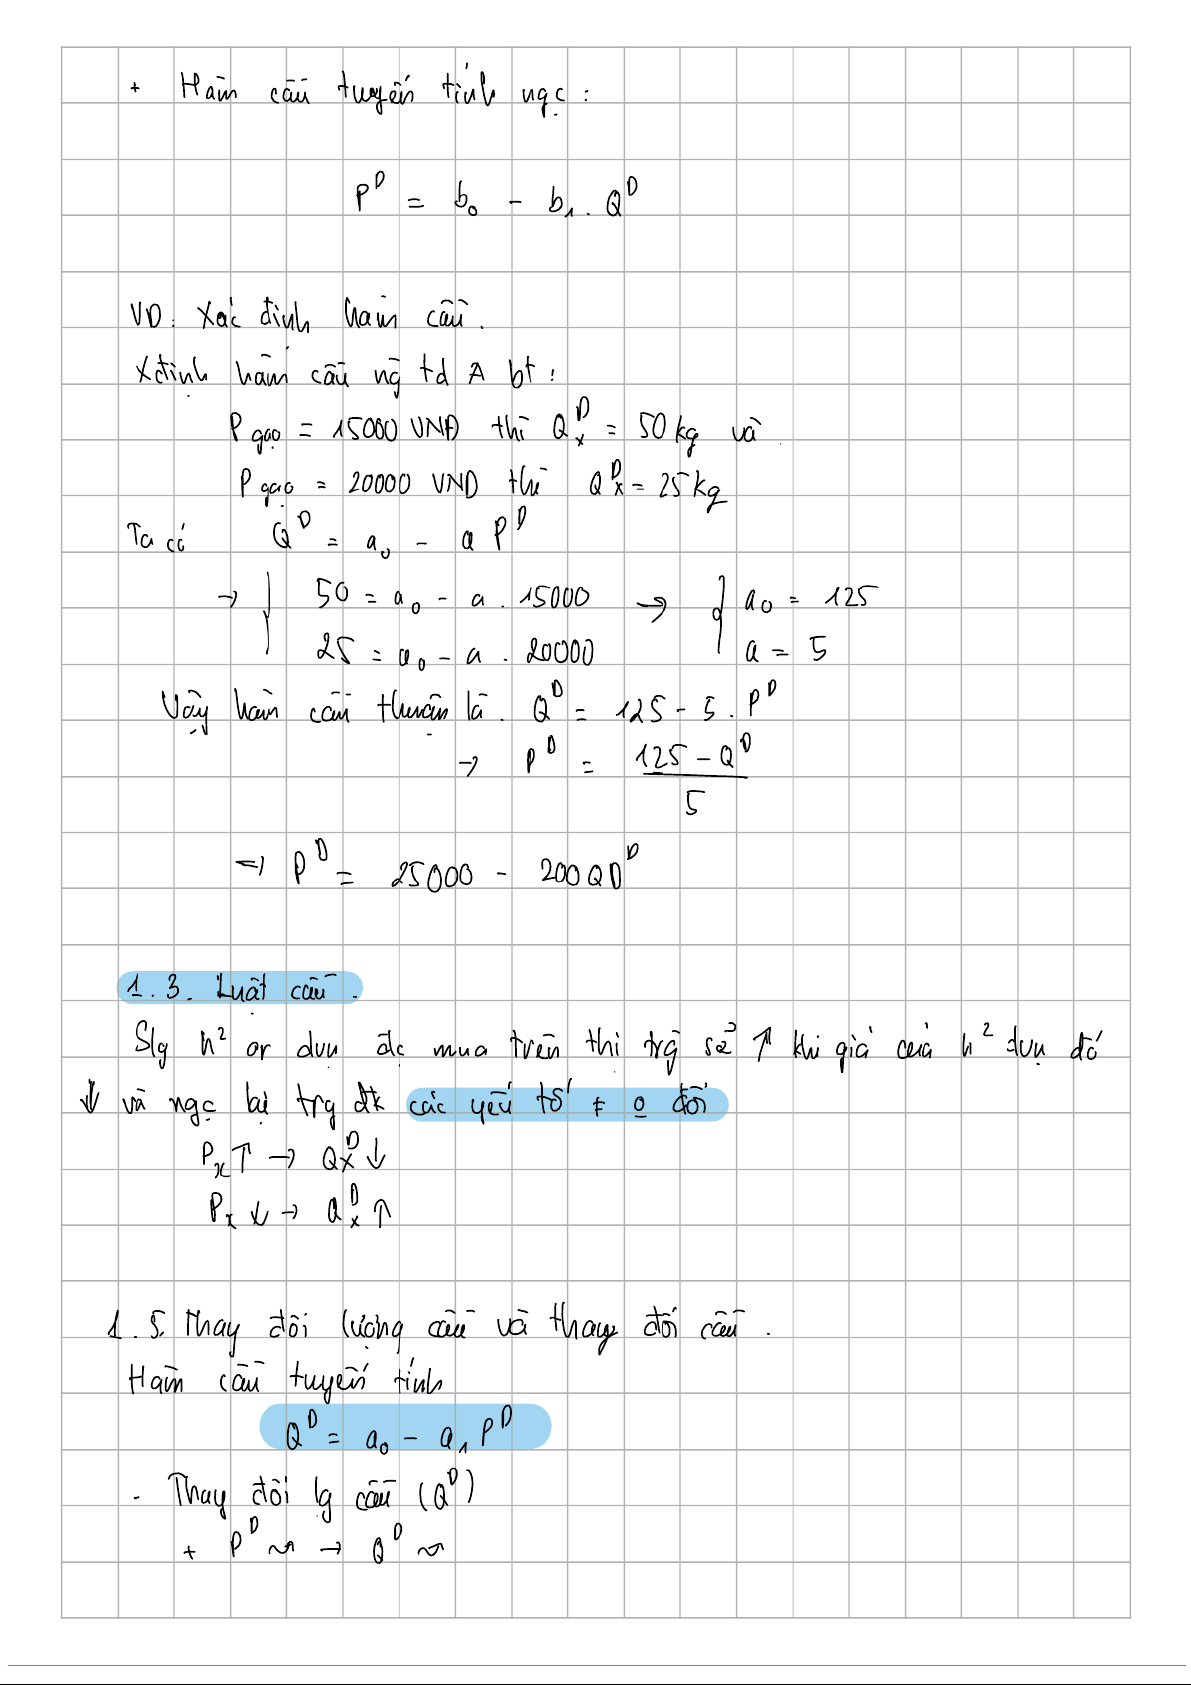 + Hàm cầu tuyến tính ngc :
P^D = b₀ - b₁ . Q^D
VD : Xác định hàm cầu .
Xđịnh hàm cầu ng td A bt :
P gạo = 15000 VNĐ thì Q^D_x = 50 kg và
P gạo = 20000 VND thì Q^D_x = 25 kg
Ta có Q^D = a₀ - a P^D
→ { 50 = a₀ - a . 15000 → { a₀ = 125
25 = a₀ - a . 20000 a = 5
Vậy hàm cầu thuận là . Q^D = 125 - 5 . P^D
→ P^D = (125 - Q^D) / 5
⇒ P^D = 25000 - 200 QD^D
1.3. Luật cầu .
Slg h² or dvụ đc mua trên thị trg sẽ ↑ khi giá của h² dvụ đó
↓ và ngc lại trg đk các yếu tố ≠ o đổi
P_x ↑ → Q^D_x ↓
P_x ↓ → Q^D_x ↑
1.5. Thay đổi lượng cầu và thay đổi cầu .
Hàm cầu tuyến tính
Q^D = a₀ - a₁ P^D
- Thay đổi lg cầu (Q^D)
+ P^D ~ → Q^D ~